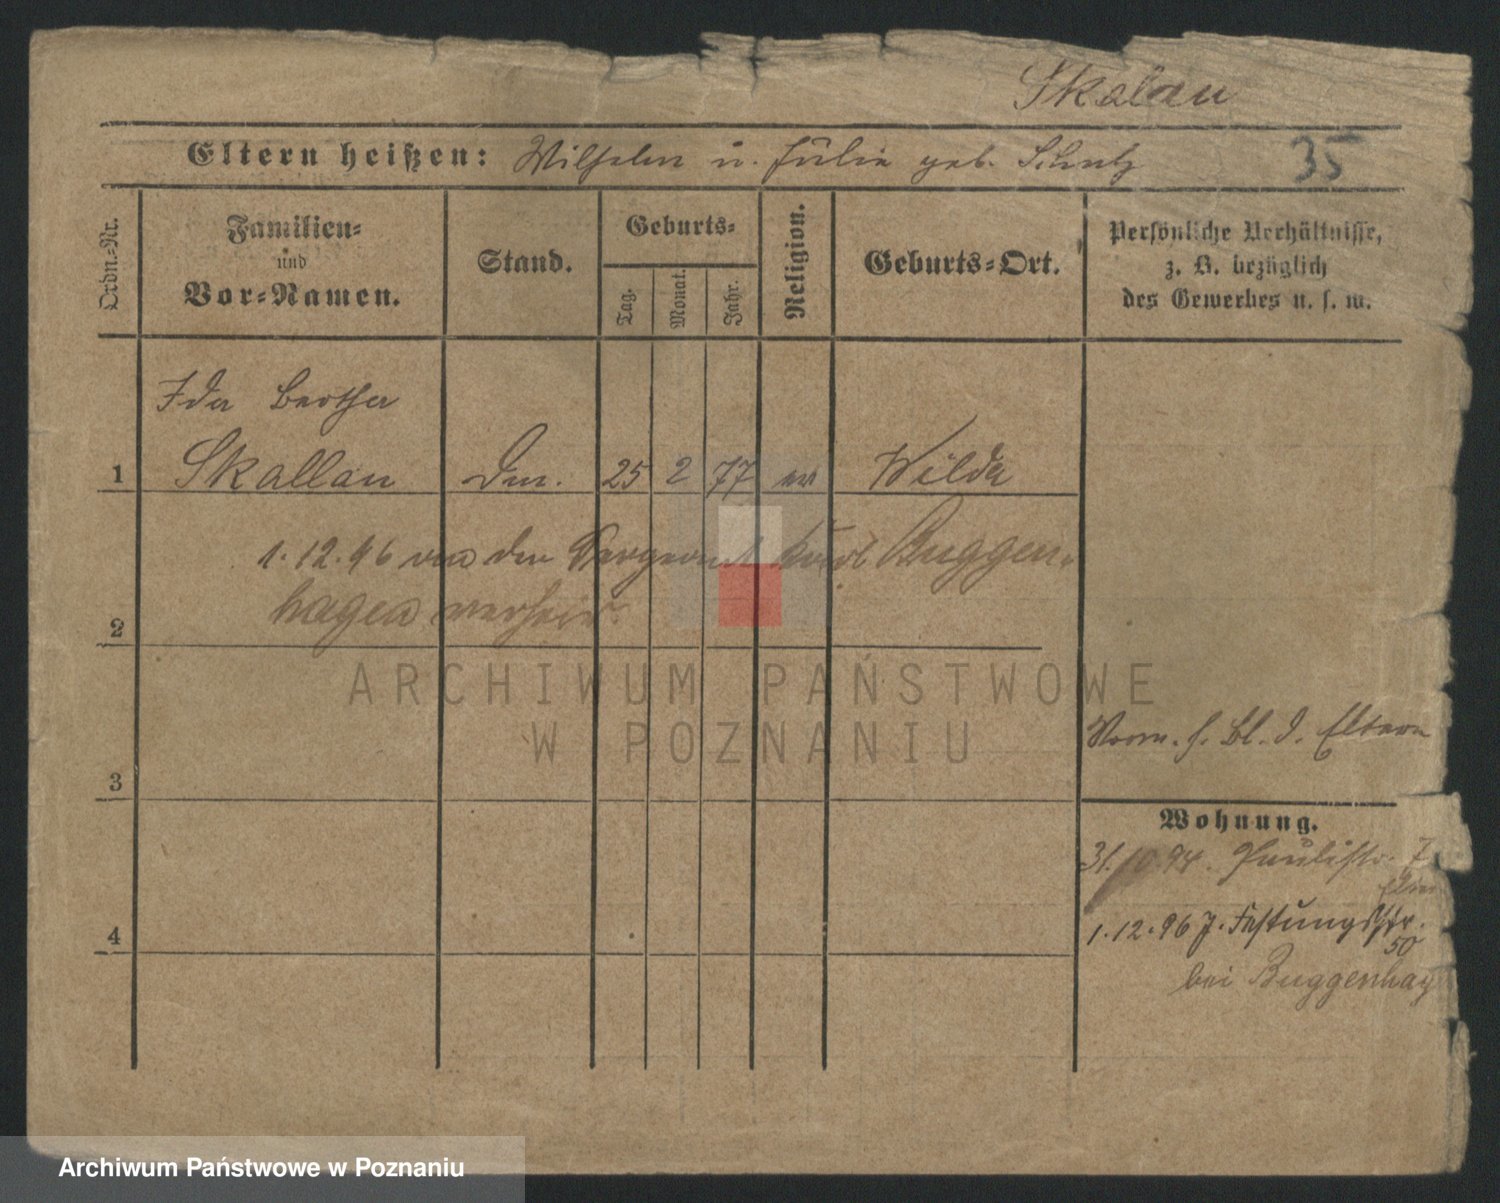 Skalau
Eltern heißen: Wilhelm u. Julie geb. Schulz
35
Ordn.-Nr.
Familien-
und
Vor-Namen.
Stand.
Geburts-
Tag.
Monat.
Jahr.
Religion.
Geburts-Ort.
Persönliche Verhältnisse,
z. B. bezüglich
des Gewerbes u. s. w.
Ida Bertha
1 Skallau 25 2 77 ev Wilda
1.12.96 den Sergeant Karl Buggen-
2 hagen verheir.
ARCHIWUM PAŃSTWOWE
W POZNANIU
Vorm. s. Bl. d. Eltern
3
Wohnung.
31.10.94. Paulistr. 7
4 1.12.96 Festungsstr.
50
bei Buggenhag
Archiwum Państwowe w Poznaniu